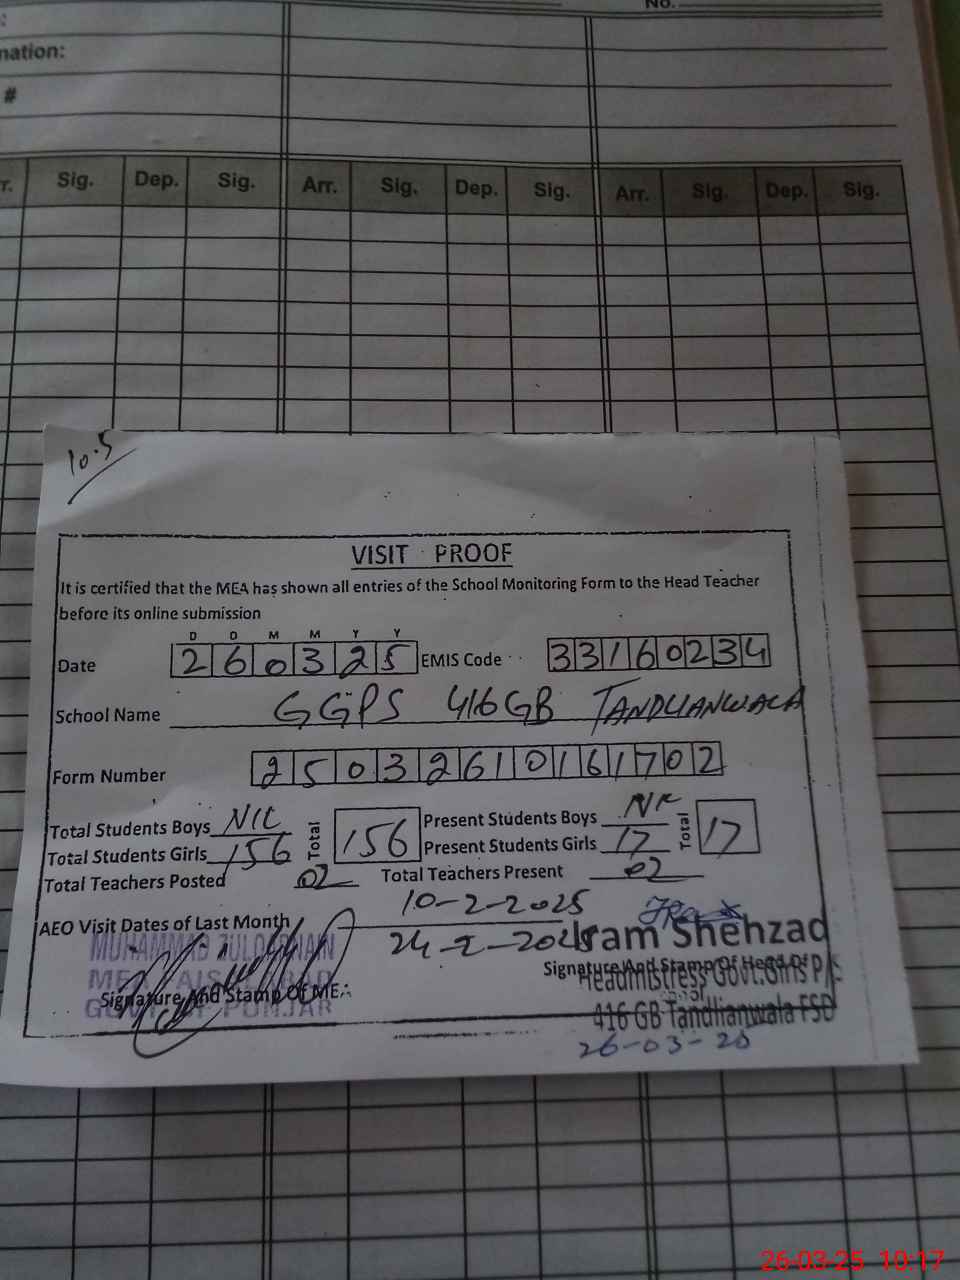 No.
nation:
#
r. Sig. Dep. Sig. Arr. Sig. Dep. Sig. Arr. Sig. Dep. Sig.
10.5
VISIT PROOF
It is certified that the MEA has shown all entries of the School Monitoring Form to the Head Teacher
before its online submission
D D M M Y Y
Date 260325 EMIS Code 33160234
School Name GGPS 416GB TANDLIANWALA
Form Number 25032610161702
Total Students Boys NIL Total 156 Present Students Boys NIL Total 17
Total Students Girls 156 Present Students Girls 17
Total Teachers Posted 02 Total Teachers Present 02
AEO Visit Dates of Last Month 10-2-2025
24-2-2025
MUHAMMAD ZULQARNAIN
MEA FAISALABAD
GOVT OF PUNJAB
Signature And Stamp Of MEA
Iram Shehzad
Signature And Stamp Of Head Of
Headmistress Govt.Girls P/S
416 GB Tandlianwala FSD
26-03-25
26-03-25 10:17